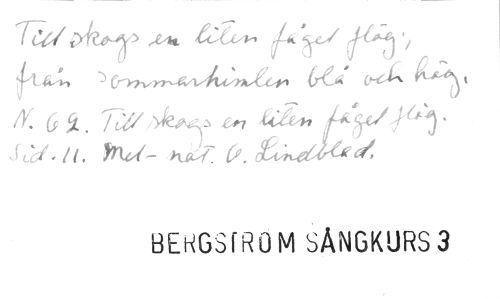 Till skogs en liten fågel flög,
från sommarhimlen blå och hög.
N. 62. Till skogs en liten fågel flög.
Sid. 11. Mel- nat. O. Lindblad.
BERGSTRÖM SÅNGKURS 3